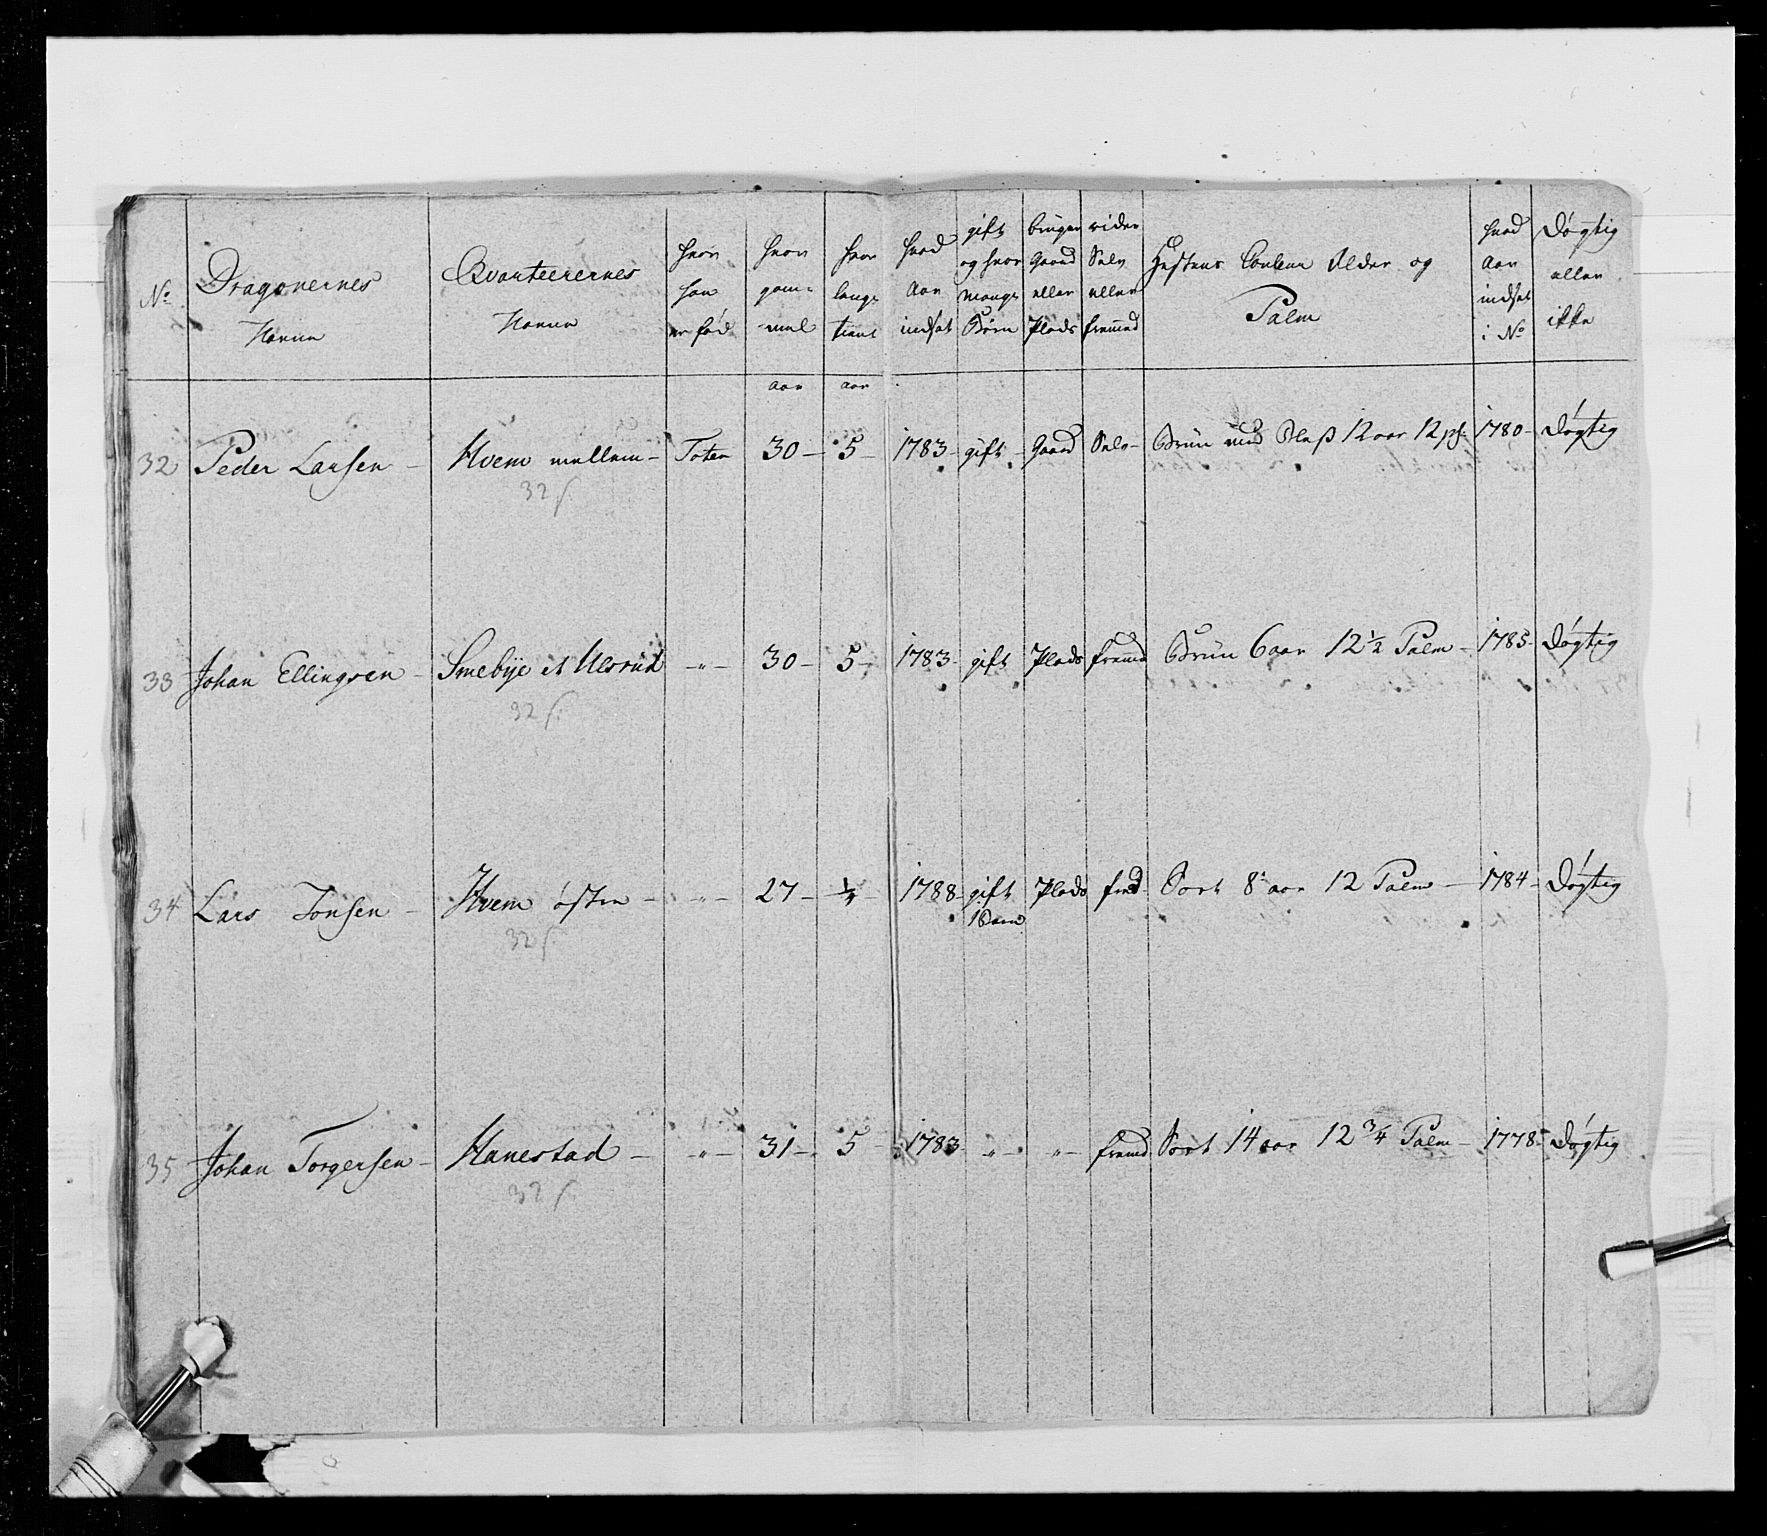 No
Dragonernes
Navne
Qvarteerernes
Navne
hvor
han
er fød
hvor
gam-
mel
hvor
længe
tient
hvad
Aar
indsat
gift
og hvor
mange
Børn
bruger
Gaard
eller
Plads
rider
Selv
eller
fremed
Hestens Couleur Alder og
Palm
hvad
Aar
indsat
i No
Døgtig
eller
ikke
aar aar
32 Peder Larsen - Hvem mellem - Toten 30 - 5 - 1783 - gift - Gaard Selv - Bruun med Bless 12 aar 12 1780 - Døgtig
32
33 Johan Ellingsen - Smebye et Ulsrud - " - 30 - 5 - 1783 - gift Plads fremd Bruun 6 aar 12 1/2 Palm - 1785 - Døgtig
32
34 Lars Jonsen - Hvem østre - - " - 27 - 1/4 - 1788 - gift Plads fremd Sort 8 aar 12 Palm - 1784 - Døgtig
1 Barn
32
35 Johan Torgersen - Hanestad - - " - 31 - 5 - 1783 - " - - " - fremd Sort 14 aar 12 3/4 Palm - 1778 - Døgtig
32